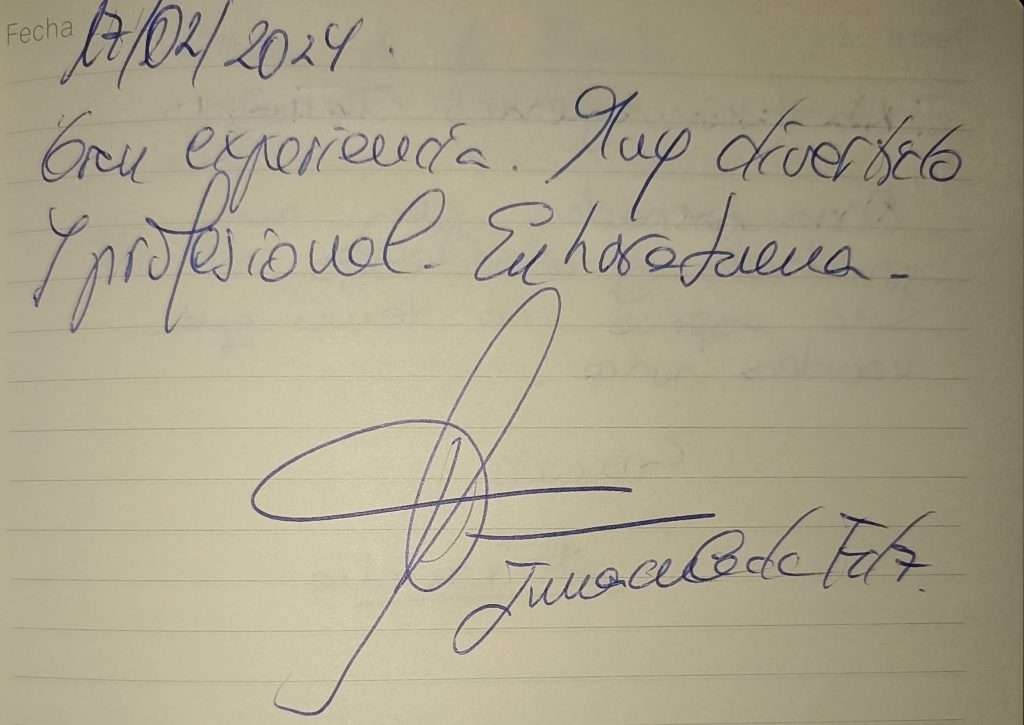 Fecha 17/02/2024.
Gran experiencia. Muy divertido
y profesional. Enhorabuena.
Inmaculada Fdz.